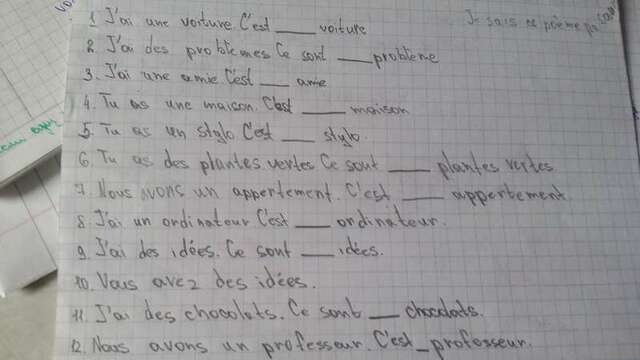 1. J'ai une voiture. C'est ____ voiture
Je sais ce poème pa
2. J'ai des problèmes Ce sont ____ problème
3. J'ai une amie. C'est ____ amie
4. Tu as une maison. C'est ____ maison
5. Tu as un stylo. C'est ____ stylo.
6. Tu as des plantes vertes Ce sont ____ plantes vertes.
7. Nous avons un appertement. C'est ____ appertement.
8. J'ai un ordinateur C'est ____ ordinateur.
9. J'ai des idées. Ce sont ____ idées.
10. Vous avez des idées.
11. J'ai des chocolats. Ce sont ____ chocolats.
12. Nous avons un professeur. C'est _ professeur.